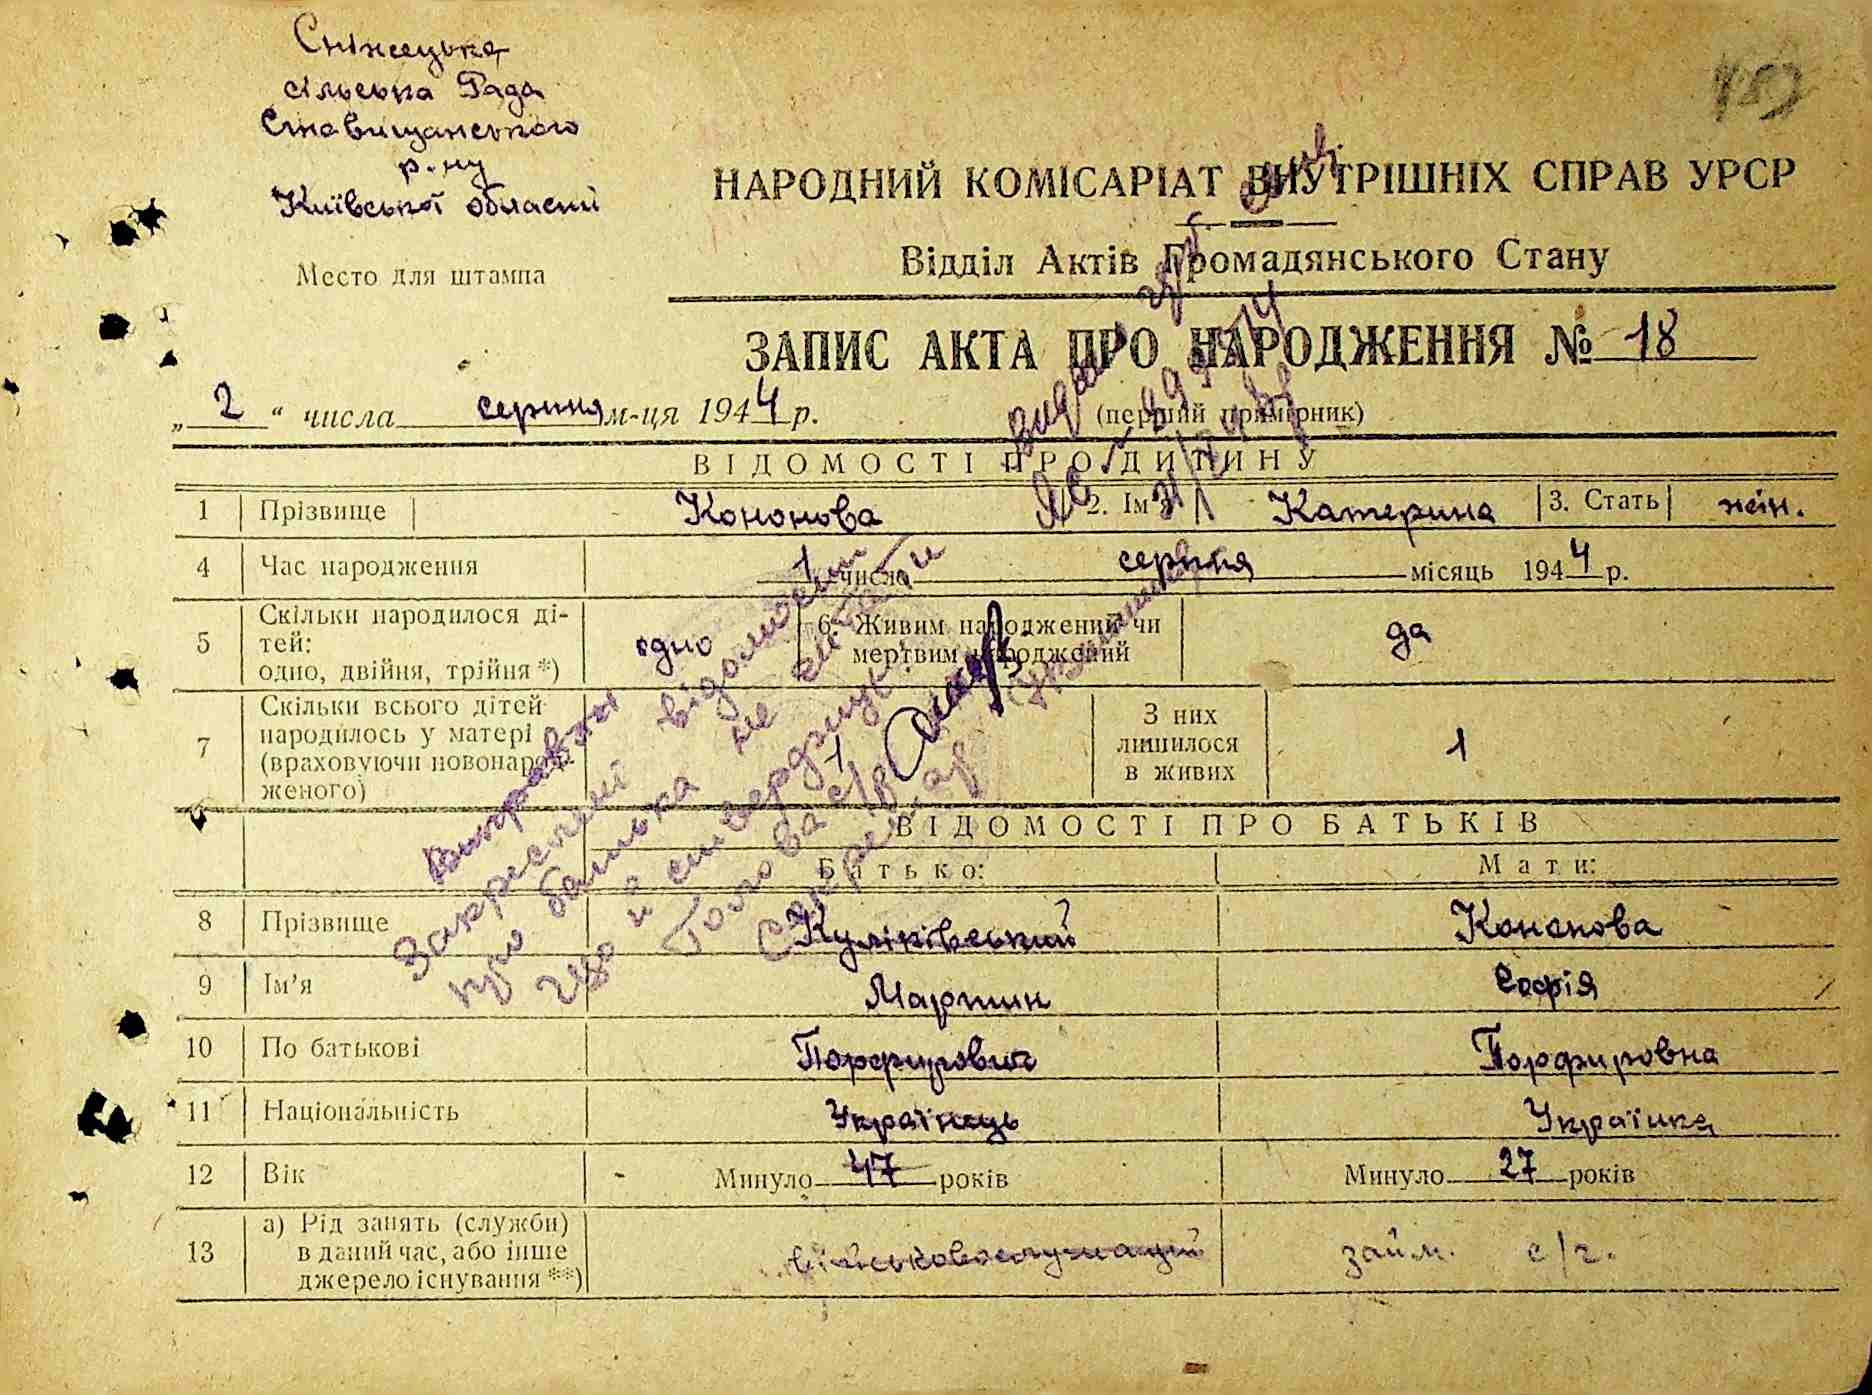 Сніжецька
сільська Рада
Ставищанського
р-ну
Київської області
Место для штампа
НАРОДНИЙ КОМІСАРІАТ ВНУТРІШНІХ СПРАВ УРСР
Відділ Актів Громадянського Стану
ЗАПИС АКТА ПРО НАРОДЖЕННЯ № 18
„ 2 “ числа серпня м-ця 1944 р. (перший примірник)
ВІДОМОСТІ ПРО ДИТИНУ
1 Прізвище Кононова 2. Ім'я Катерина 3. Стать жін.
4 Час народження 1 число серпня місяць 1944 р.
5 Скільки народилося ді-
тей:
одно, двійня, трійня *) одно 6. Живим народжений чи
мертвим народжений да
7 Скільки всього дітей
народилось у матері
(враховуючи новонарод-
женого) 1 З них
лишилося
в живих 1
ВІДОМОСТІ ПРО БАТЬКІВ
Батько: Мати:
8 Прізвище Куліківський Кононова
9 Ім'я Мартин Софія
10 По батькові Порфирович Порфировна
11 Національність Українець Українка
12 Вік Минуло 47 років Минуло 27 років
13 а) Рід занять (служби)
в даний час, або інше
джерело існування **) військовослужащий займ. с/г.
Виправлені
Закреслені відомості
про батька не читати
що і стверджує
Голова с/в
Секретар